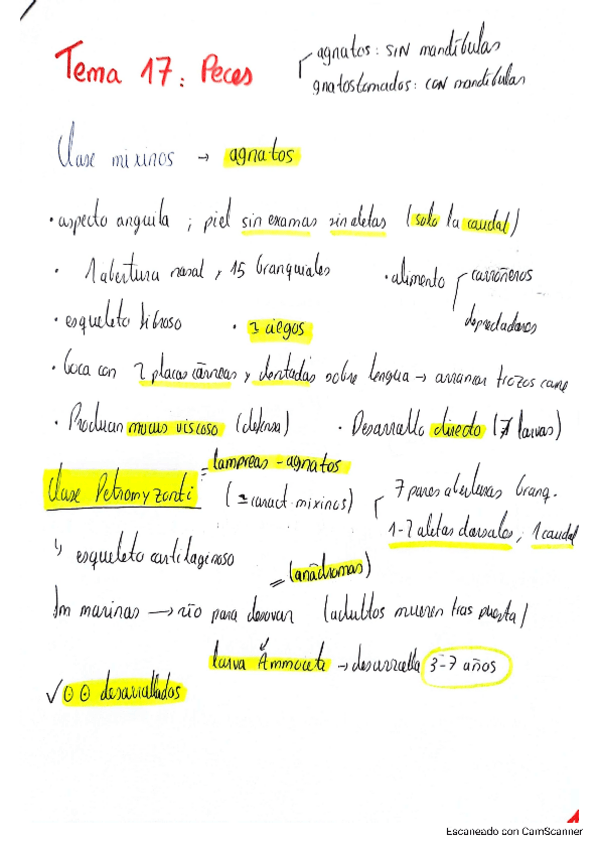 Tema 17: Peces
agnatos: SIN mandíbulas
gnatostomados: CON mandíbulas
Clase mixinos → agnatos
• aspecto anguila ; piel sin escamas sin aletas (solo la caudal)
• 1 abertura nasal y 15 branquiales • alimento carroñeros
depredadores
• esqueleto fibroso • ciegos
• boca con 2 placas córneas y dentadas sobre lengua → arrancar trozos carne
• Producen mucus viscoso (defensa) • Desarrollo directo (larvas)
= lampreas - agnatos
Clase Petromyzonti (caract. mixinos) 7 pares aberturas branq.
1-2 aletas dorsales, 1 caudal
↳ esqueleto cartilaginoso
= (anádromas)
1m marinas → río para desovar (adultos mueren tras puesta)
larva Ammocete → desarrolla 3-7 años
✓ desarrollados
Escaneado con CamScanner